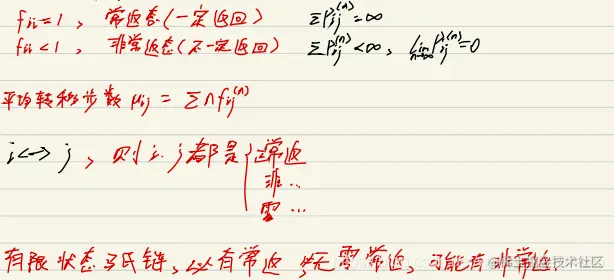 fii=1, 常返态(一定返回) ΣPij^(n)=∞
fii<1, 非常返态(不一定返回) ΣPij^(n)<∞, lim n→∞ Pij^(n)=0
平均转移步数 μij = Σnfij^(n)
i<->j, 则 i. j都是{常返
非..
零...
有限状态马氏链,必有常返,无零常返,可能有非常返.